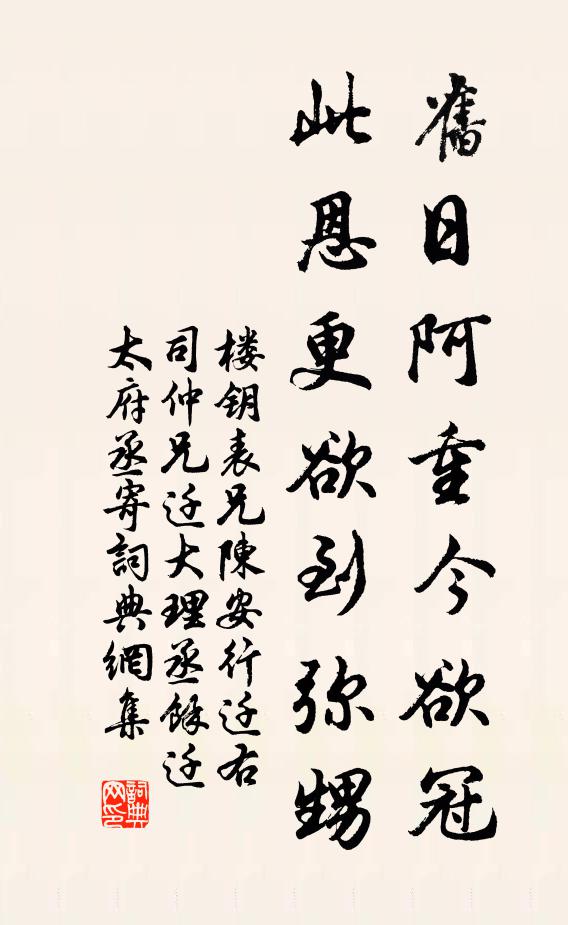 舊日阿重今欲冠
此恩更欲到弥甥
楼钥表兄陳安行迁右
司仲兄迁大理丞餘迁
太府丞寄詞典網集
詞典网印